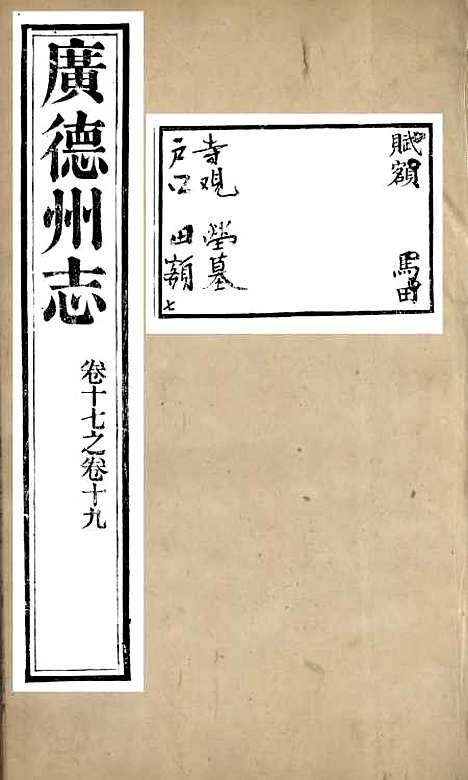 廣德州志
卷十七之卷十九
賦額 馬田
寺观 塋墓
户口 田額
七